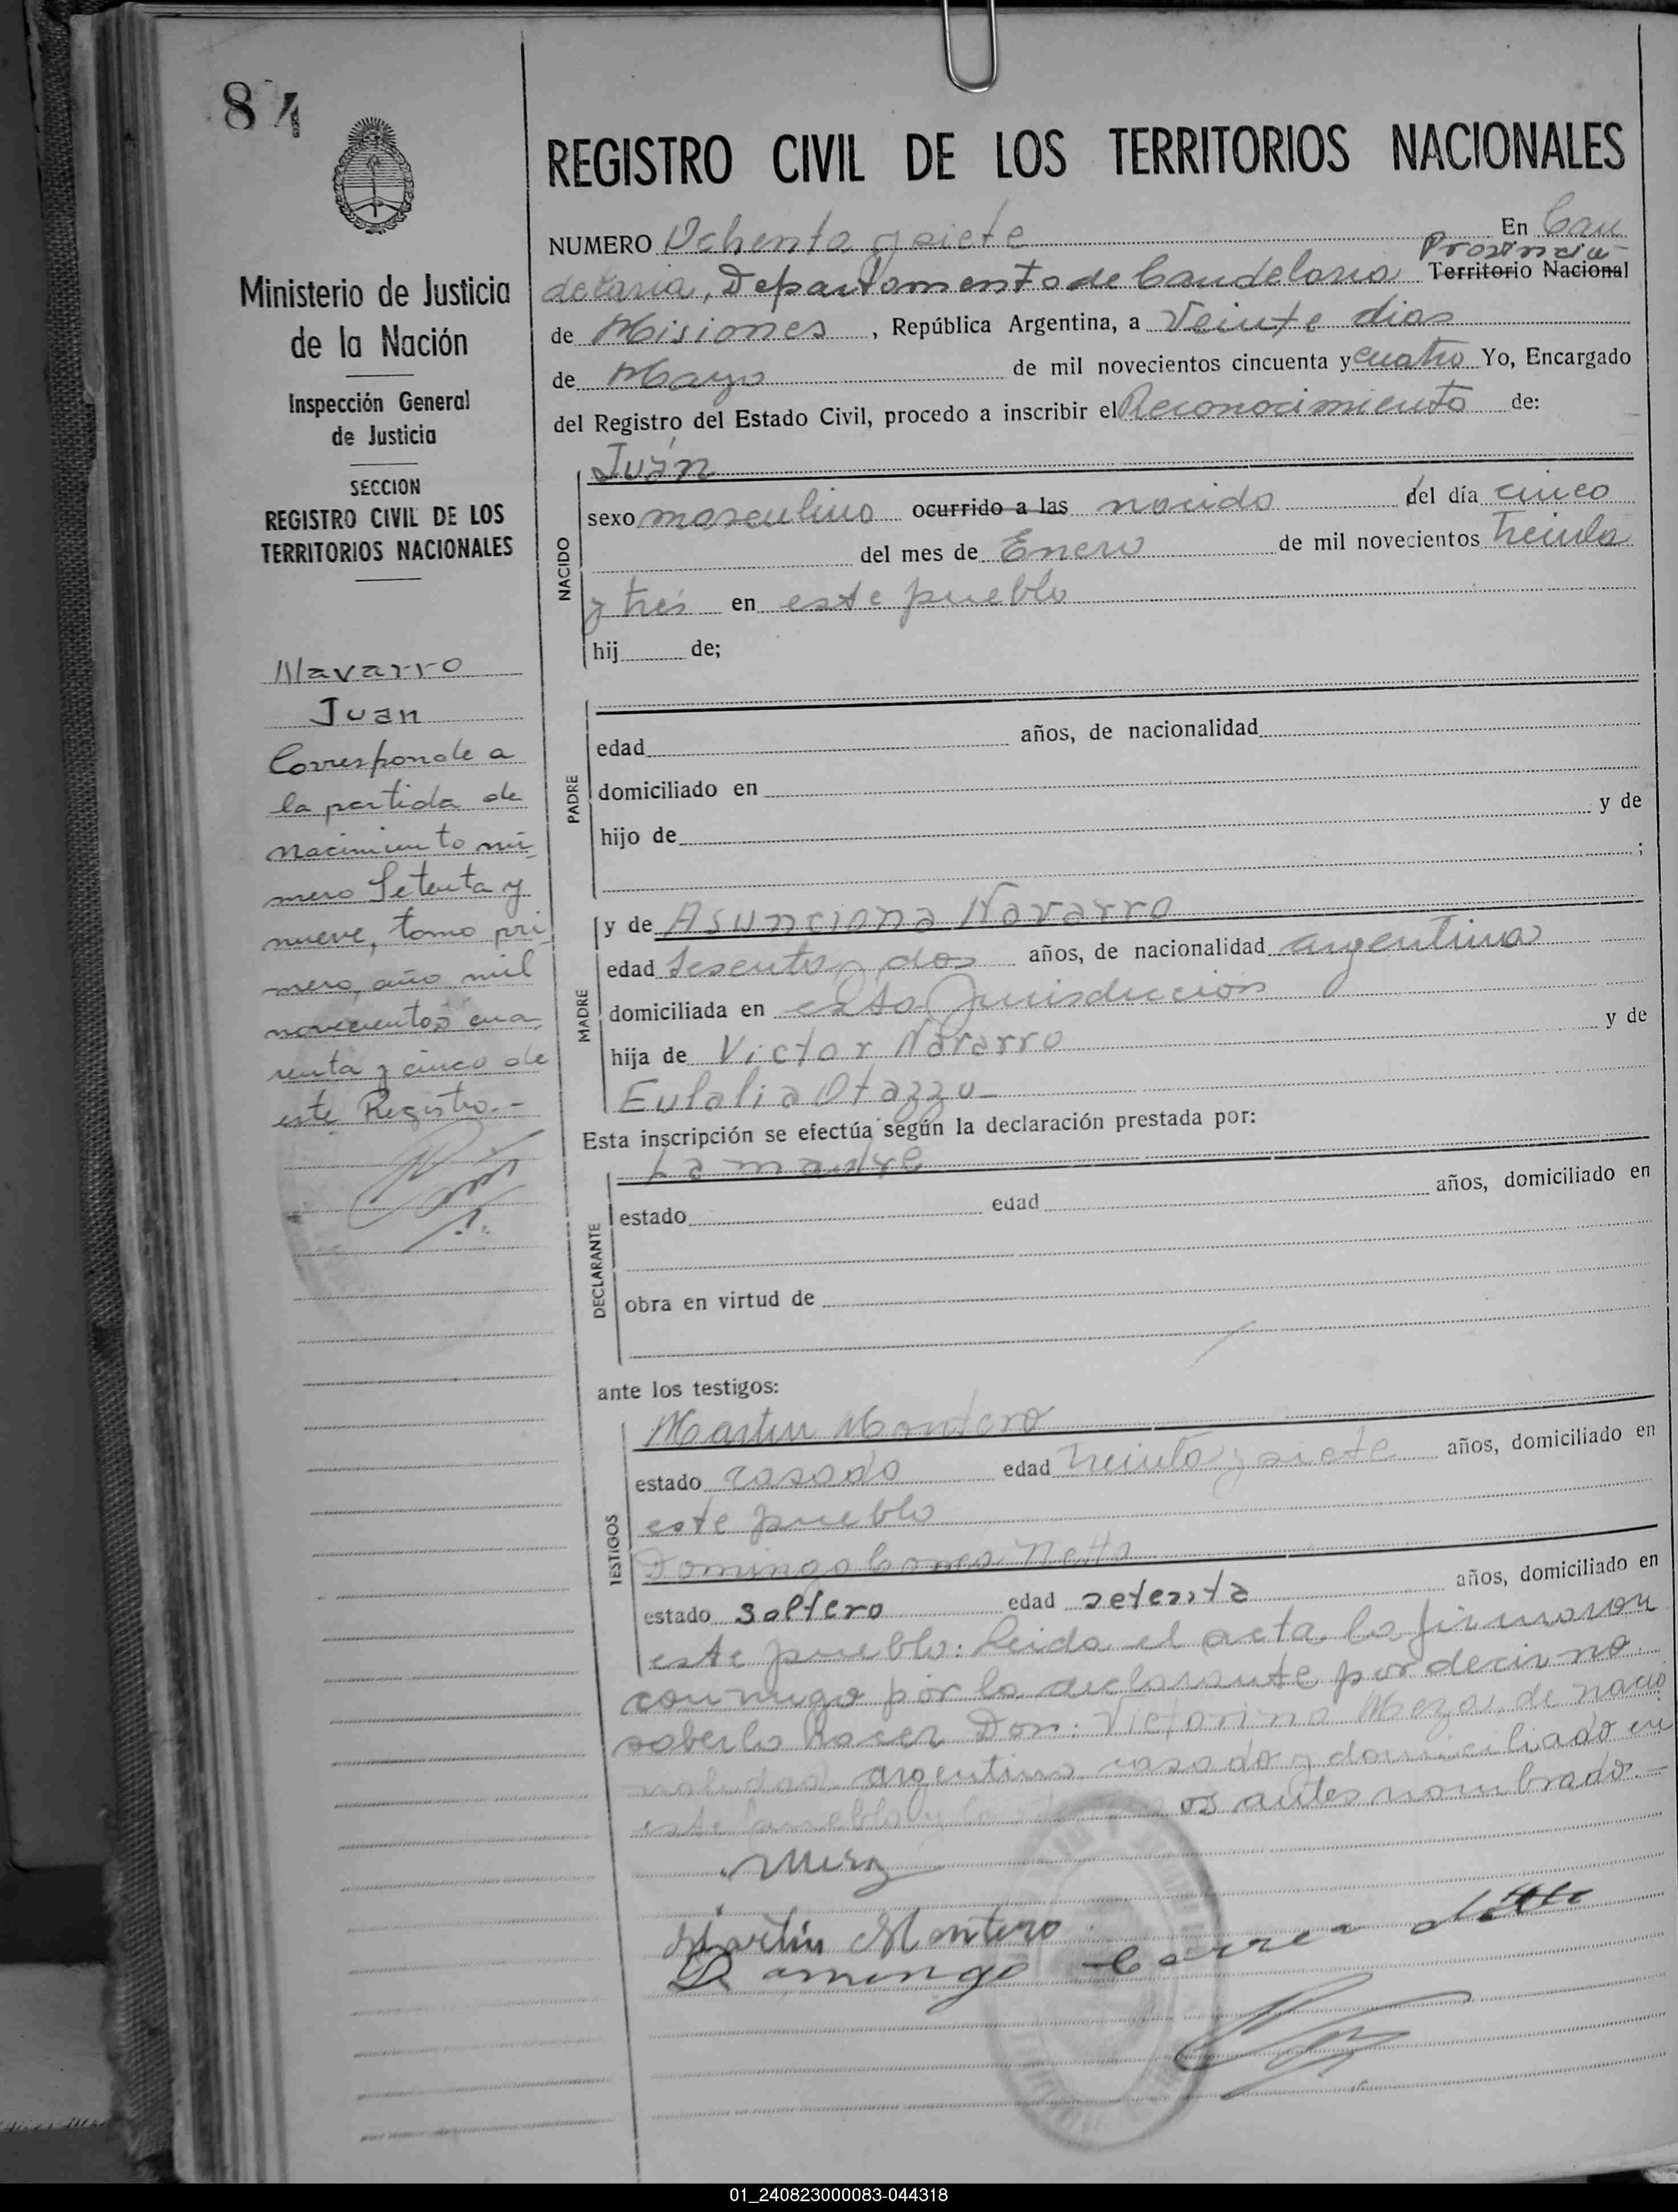 84
REGISTRO CIVIL DE LOS TERRITORIOS NACIONALES
Ministerio de Justicia
de la Nación
Inspección General
de Justicia
SECCION
REGISTRO CIVIL DE LOS
TERRITORIOS NACIONALES
Navarro
Juan
Corresponde a
la partida de
nacimiento nú-
mero Setenta y
nueve, tomo pri-
mero, año mil
novecientos cua-
renta y cinco de
este Registro.-
NUMERO Ochenta y siete En Can
Provincia
delaria, Departamento de Candelaria Territorio Nacional
de Misiones, República Argentina, a Veinte dias
de Mayo de mil novecientos cincuenta y cuatro Yo, Encargado
del Registro del Estado Civil, procedo a inscribir el Reconocimiento de:
NACIDO
Juán
sexo masculino ocurrido a las nacido del día cinco
del mes de Enero de mil novecientos treinta
y trés en este pueblo
hij de;
PADRE
edad años, de nacionalidad
domiciliado en
hijo de y de
;
MADRE
y de Asunciona Navarro
edad Sesenta y dos años, de nacionalidad argentina
domiciliada en esta Jurisdicción
hija de Victor Navarro y de
Eulalia Otazzu-
Esta inscripción se efectúa según la declaración prestada por:
DECLARANTE
La madre
estado edad años, domiciliado en
obra en virtud de
ante los testigos:
TESTIGOS
Martin Montero
estado casado edad treinta y siete años, domiciliado en
este pueblo
Domingo Correa Netto
estado soltero edad setenta años, domiciliado en
este pueblo: Leida el acta la firmaron
conmigo por la declarante por decir no
saberlo hacer Don: Victorino Meza, de nacio
nalidad argentino casado y domiciliado en
este pueblo y los os antes nombrados.-
Meza
Martin Montero
Domingo Correa Netto
01_240823000083-044318